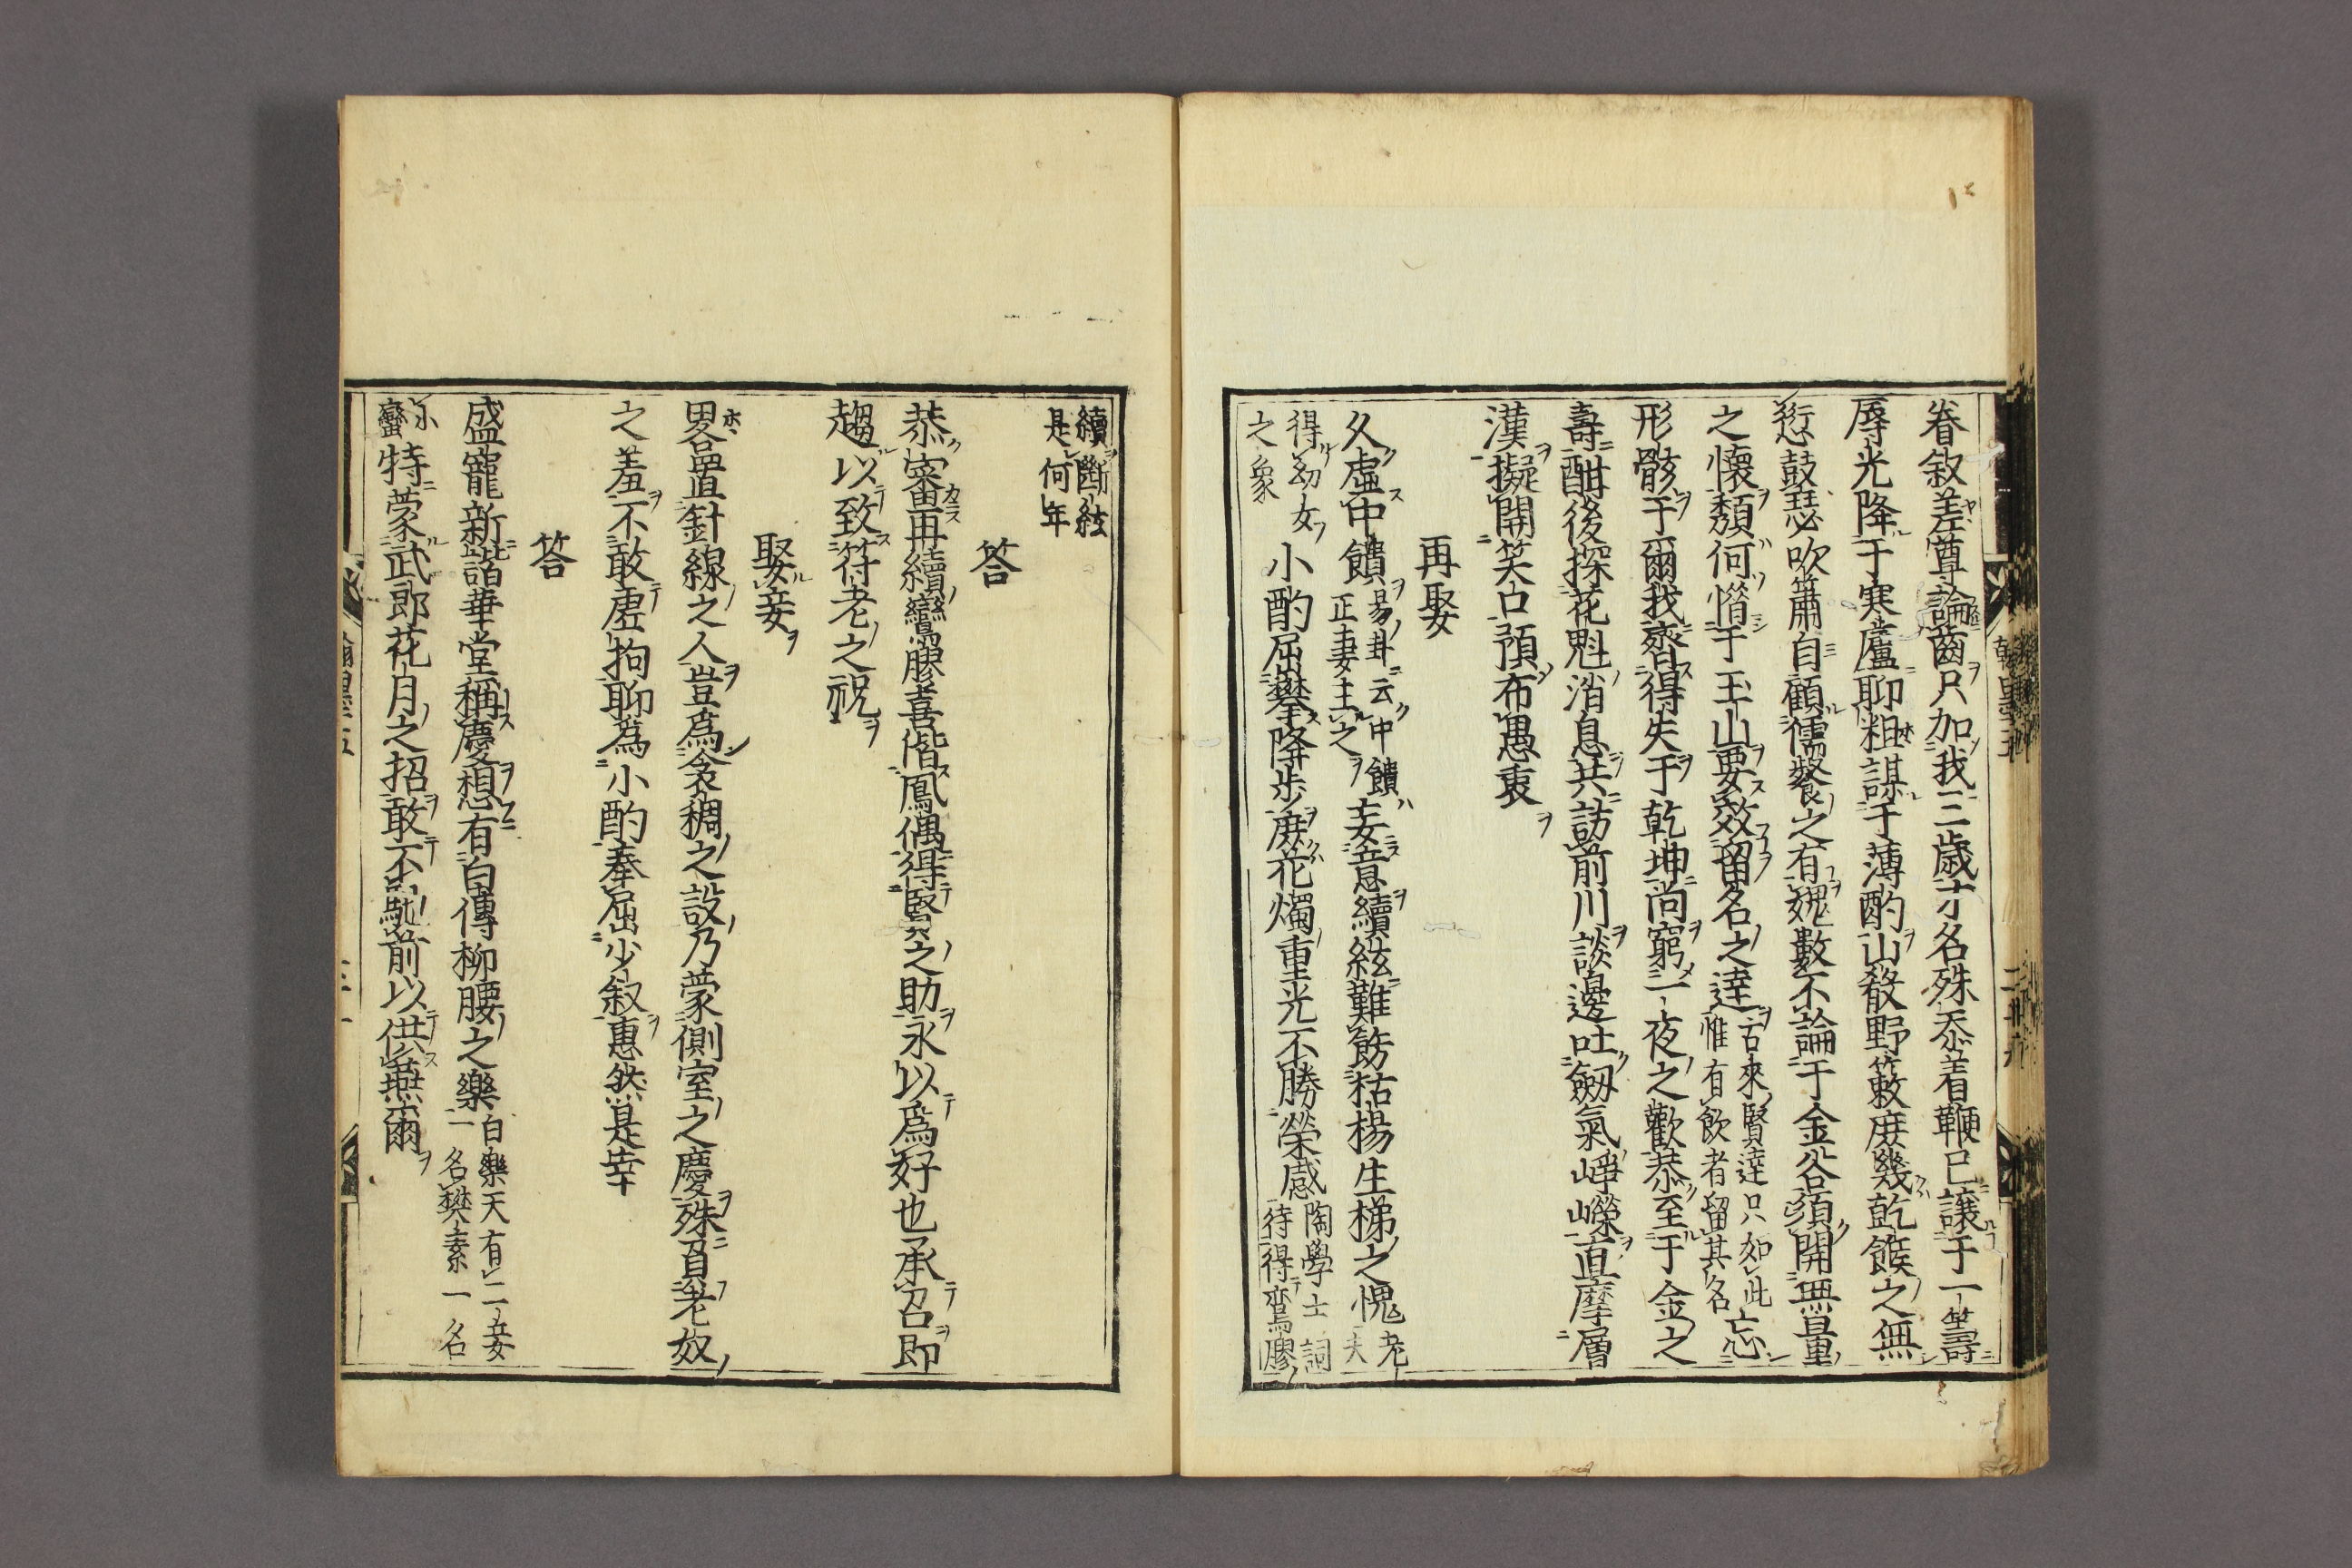 眷敘差尊論齒只加我三歲才名殊忝着鞭已讓于一筹壽
辱光降于寒廬聊粗謀于薄酌山殽野蔌庶幾乾餱之無
愆鼓瑟吹簫自顧儒餐之有媿數不論于金谷須開無量
之懷頹何惜于玉山要效留名之達古來賢達只如此
惟有飲者留其名忘
形骸于爾我齊得失于乾坤尚窮一夜之歡恭至于金之
壽酣後探花魁消息共訪前川談邊吐劔氣崢嶸直摩層
漢擬開笑口預布愚衷
再娶
久虛中饋易卦云中饋
正妻主之妄意續絃難飭枯楊生梯之愧老夫
得幼女
之象小酌屈攀降步庶花燭重光不勝榮感陶學士詞
待得鸞膠
續斷絃
是何年
答
恭審再續鸞膠喜偕鳳偶得賢之助永以爲好也承召即
趨以致符老之祝
娶妾
畧置針線之人豈爲衾裯之設乃蒙側室之慶殊負老奴
之羞不敢虛拘聊爲小酌奉屈少叙惠然是幸
答
盛寵新諧華堂稱慶想有白傅柳腰之樂白樂天有二妾
一名樊素一名
小
蠻特蒙武郎花月之招敢不馳前以供燕爾